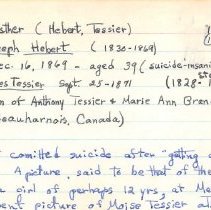 sther (Hebert, Tessier)
seph Hebert (1830-1869)
ec. 16, 1869 - aged 39 (suicide-insani
es Tessier Sept. 25-1871 (1828-
n of Anthony Tessier & Marie Ann Bren
Beauharnois, Canada)
comitted suicide after "getting
A picture, said to be that of the
a girl of perhaps 12 yrs, at Me
ent picture of Moise Tessier al